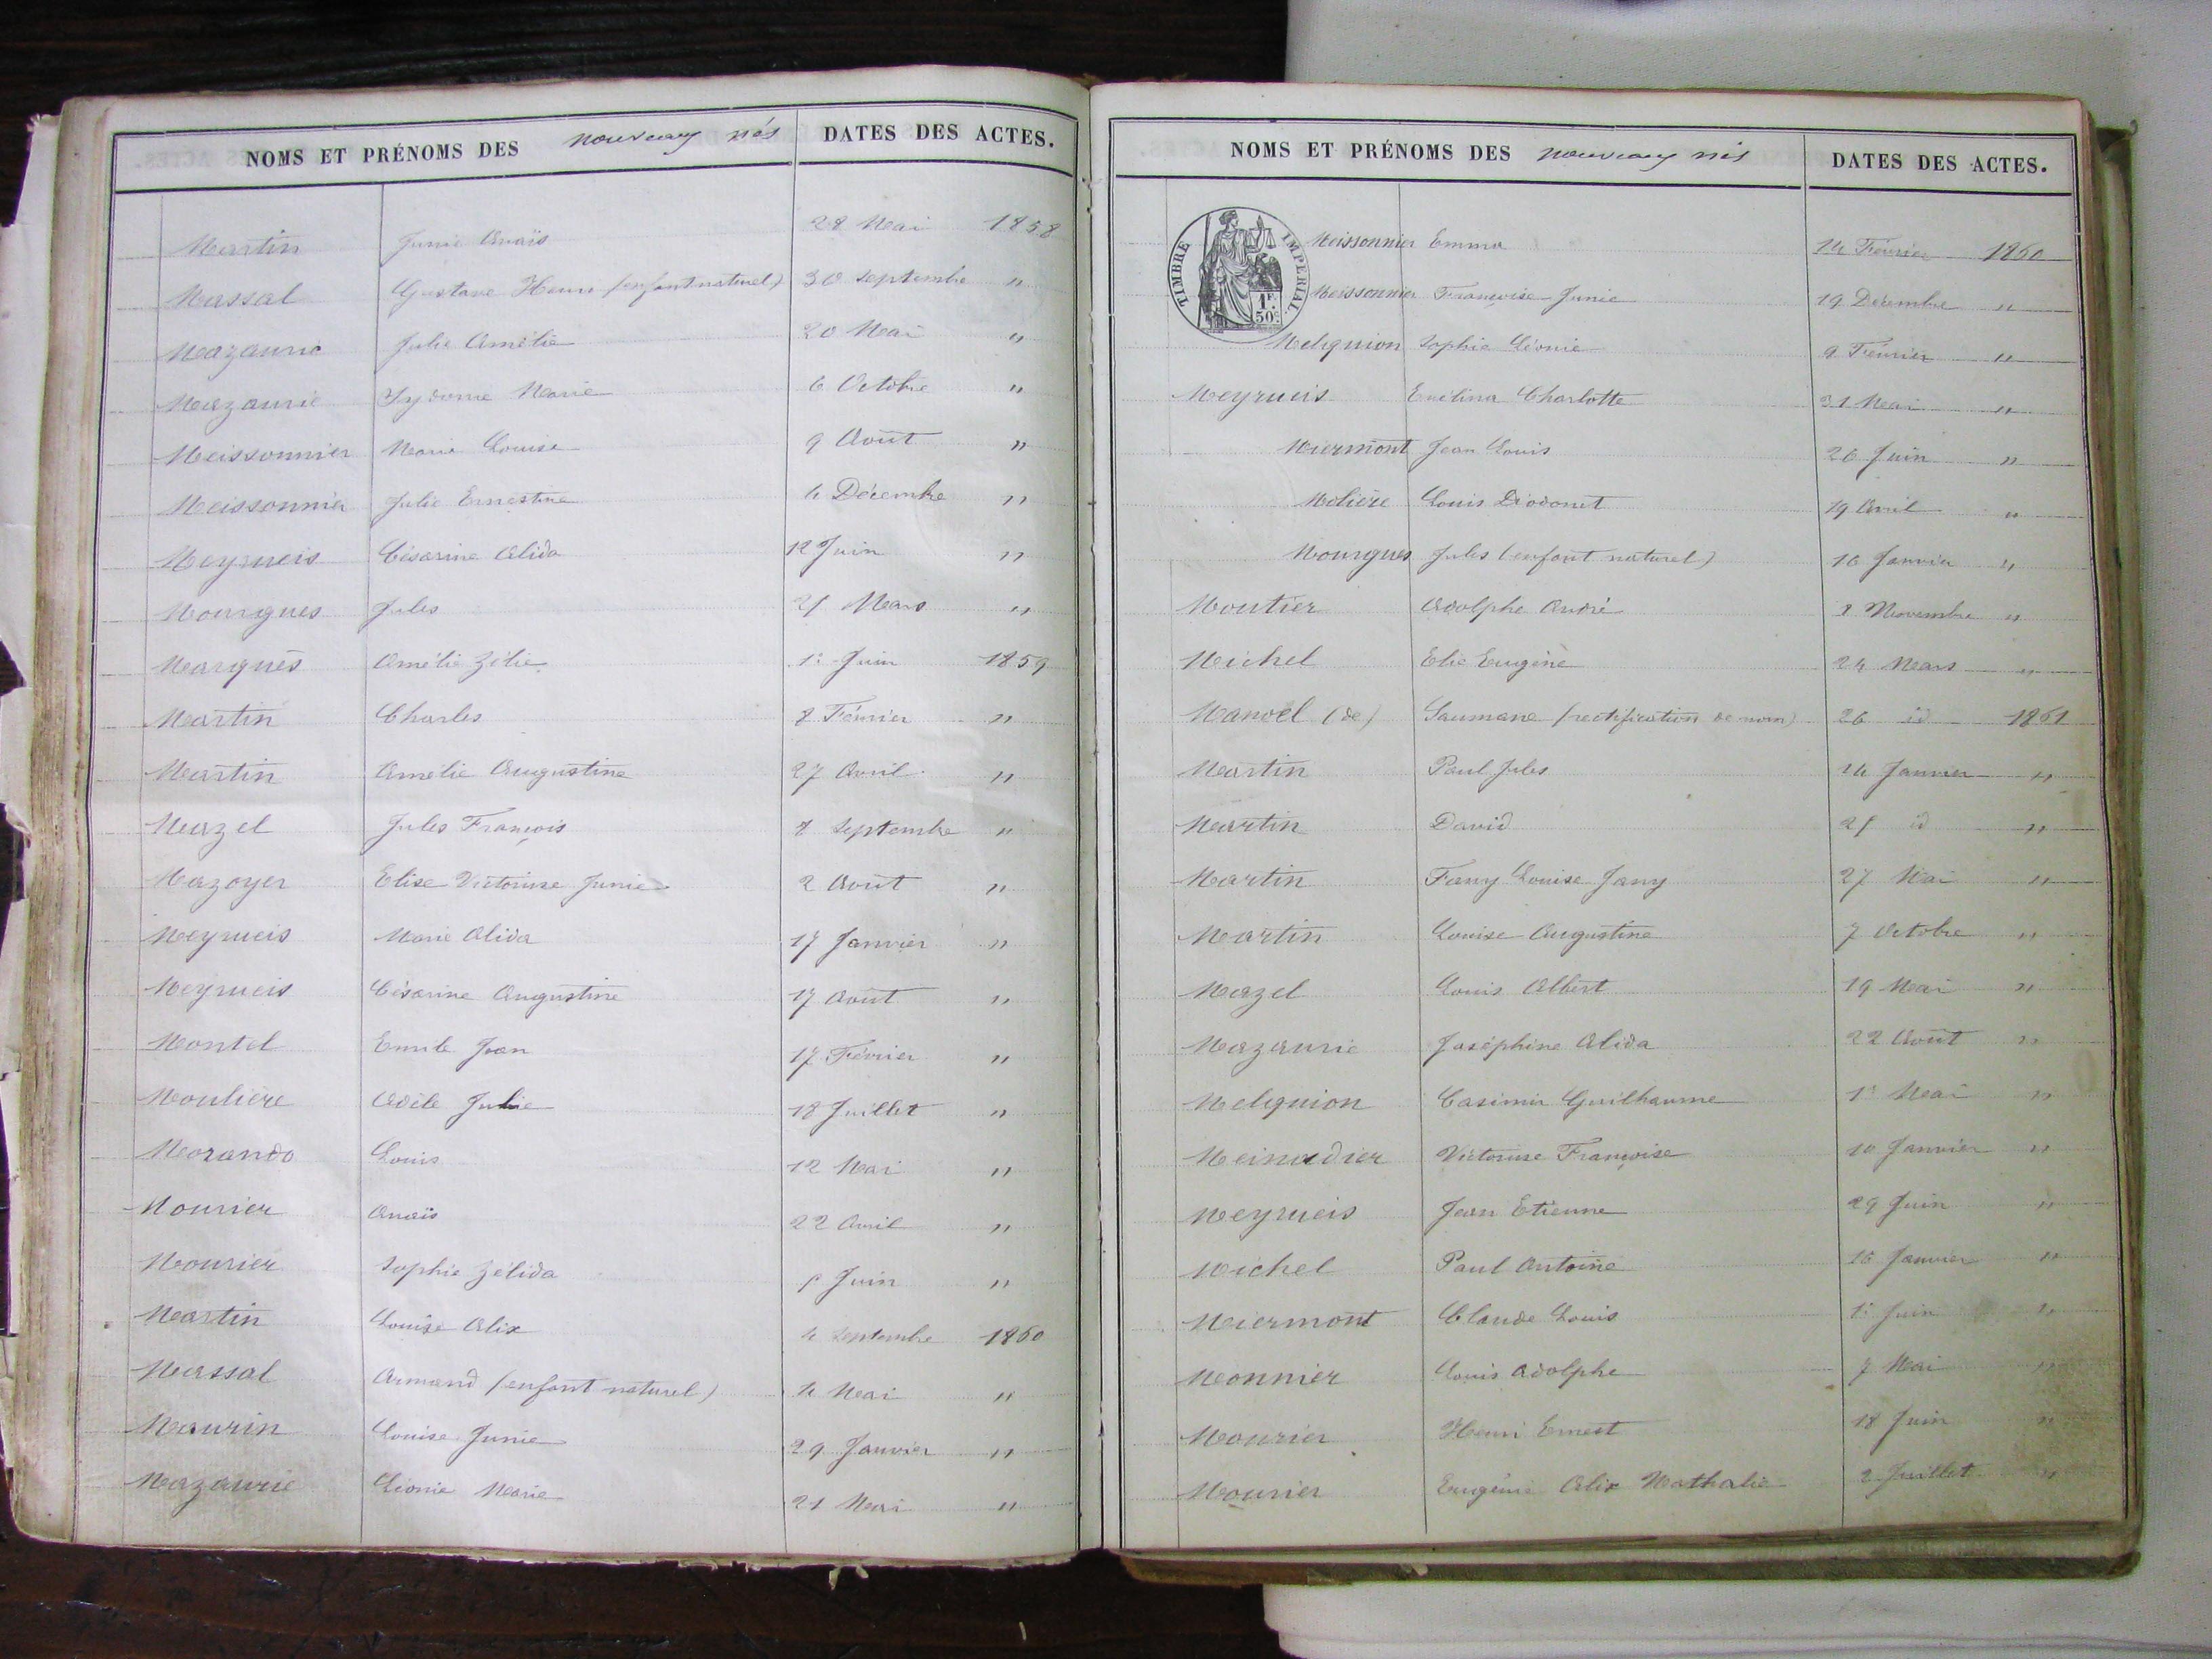 NOMS ET PRÉNOMS DES nouveaux nés DATES DES ACTES.
Martin Junie Anaïs 28 Mai 1858
Massal Gustave Henri (enfant naturel) 30 Septembre "
Mazauric Julie Amélie 20 Mai "
Mazauric Sydonie Marie 6 Octobre "
Meissonnier Marie Louise 9 Août "
Meissonnier Julie Ernestine 4 Décembre "
Meyrueis Césarine Alida 12 Juin "
Mourgues Jules 25 Mars "
Marguès Amélie Zélie 1er Juin 1859
Martin Charles 8 Février "
Martin Amélie Augustine 27 Avril "
Mazel Jules François 8 Septembre "
Mazoyer Elise Victorine Junie 2 Août "
Meyrueis Marie Alida 17 Janvier "
Meyrueis Césarine Augustine 17 Août "
Montel Emile Jean 17 Février "
Moulière Adèle Julie 18 Juillet "
Morando Louis 12 Mai "
Mourier Anaïs 22 Avril "
Mourier Sophie Zélida 5 Juin "
Martin Louise Alix 4 Septembre 1860
Massal Armand (enfant naturel) 4 Mai "
Maurin Louise Junie 29 Janvier "
Mazauric Léonie Marie 21 Mai "
NOMS ET PRÉNOMS DES nouveaux nés DATES DES ACTES.
TIMBRE IMPERIAL.
1F.
50c.
Meissonnier Emma 14 Février 1860
Meissonnier Françoise Junie 19 Décembre "
Melquion Sophie Léonie 9 Février "
Meyrueis Evélina Charlotte 31 Mai "
Miermont Jean Louis 26 Juin "
Molière Louis Diodonet 19 Avril "
Mourgues Jules (enfant naturel) 16 Janvier "
Moutier Adolphe André 8 Novembre "
Michel Elie Eugène 24 Mars "
Manoël (de) Saumane (rectification de nom) 26 id 1861
Martin Paul Jules 14 Janvier "
Martin David 25 id "
Martin Fany Louise Jany 27 Mai "
Martin Louise Augustine 7 Octobre "
Mazel Louis Albert 19 Mai "
Mazauric Joséphine Alida 22 Août "
Melquion Casimir Guilhaume 1er Mai "
Meinadier Victorine Françoise 10 Janvier "
Meyrueis Jean Etienne 29 Juin "
Michel Paul Antoine 15 Janvier "
Miermont Claude Louis 1er Juin "
Monnier Louis Adolphe 7 Mai "
Mourier Henri Ernest 18 Juin "
Mourier Eugénie Alix Nathalie 2 Juillet "